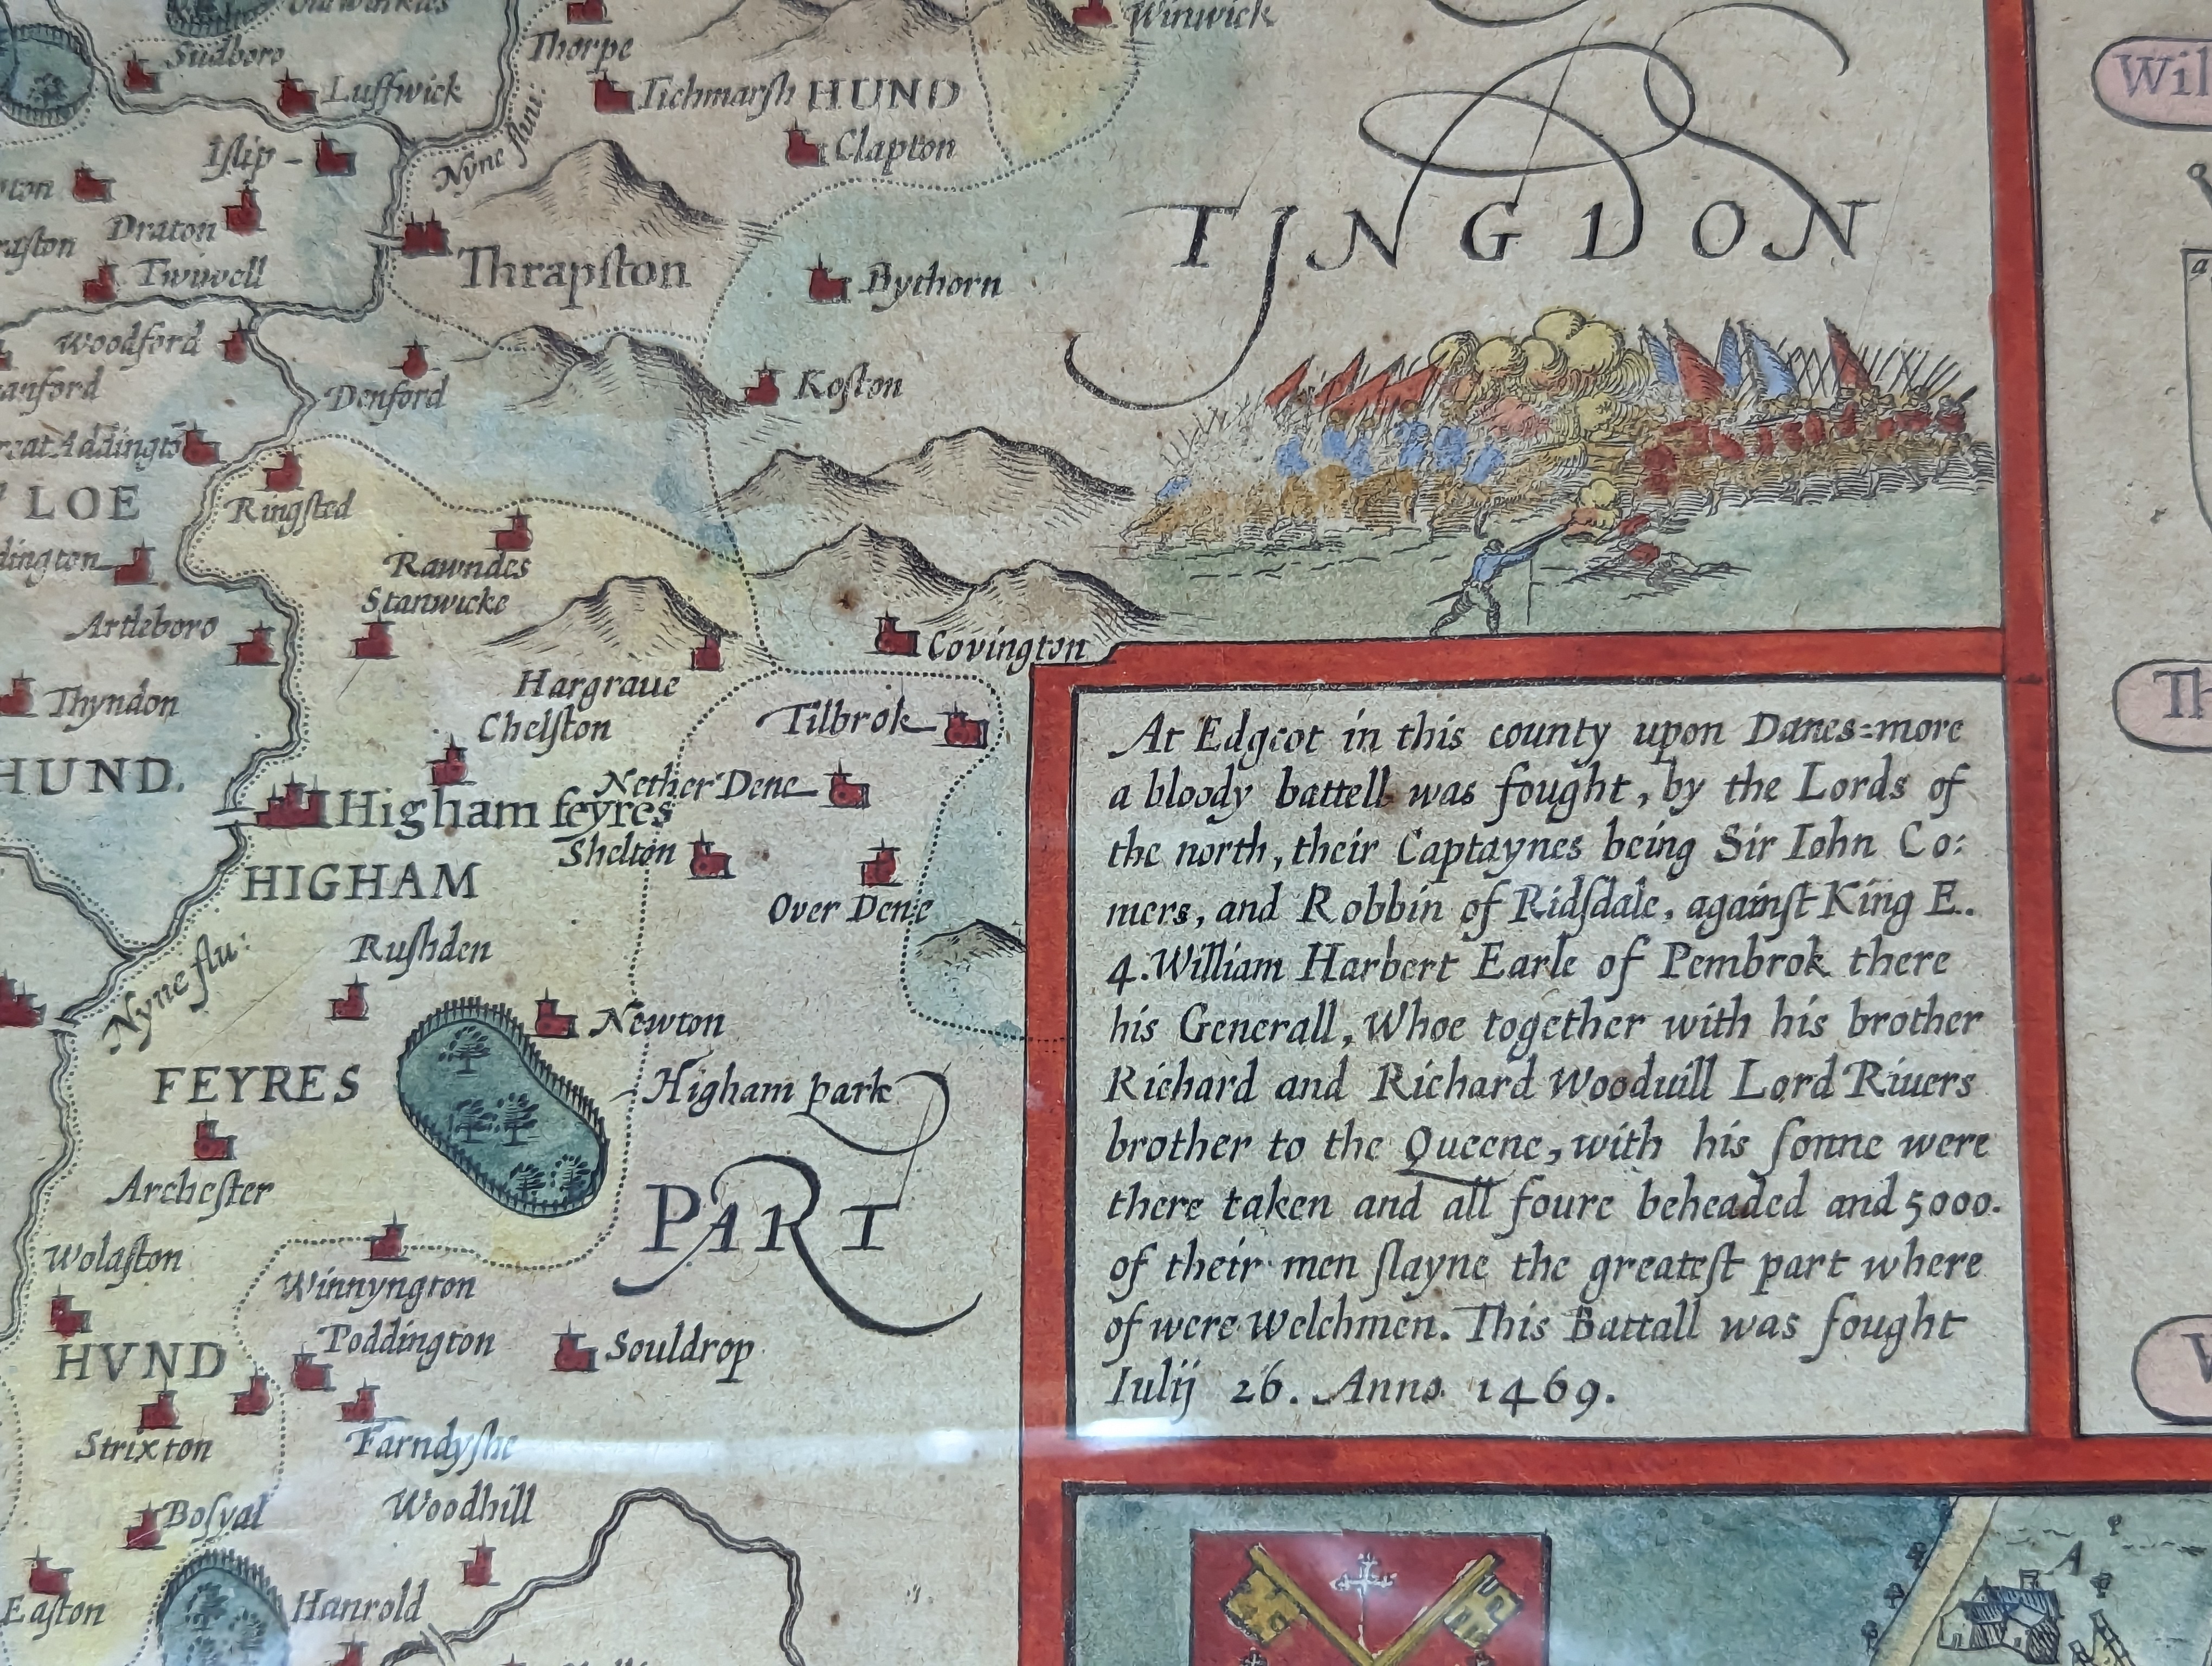 Winwick
Sudboro
Thorpe
Luffwick
Tichmarſh HUND
Iſlip
Nyne fluu:
Clapton
Draton
Twiwell
Thrapſton
TJNGDON
Bythorn
Woodford
Denford
Koſton
LOE
Ringſted
Rawndes
Stanwicke
Artleboro
Covington
Hargraue
Thyndon
Chelſton
Tilbrok
HUND.
Nether Dene
Higham feyres
Shelton
HIGHAM
Over Dene
Ruſhden
Nyne flu:
Newton
FEYRES
Higham park
Archeſter
PART
Wolaſton
Winnyngton
Poddington
Souldrop
HVND
Strixton
Farndyſhe
Woodhill
Boſyat
Eaſton
Hanrold
At Edgcot in this county upon Danes=more
a bloody battell was fought, by the Lords of
the north, their Captaynes being Sir Iohn Co:
mers, and Robbin of Ridſdale, againſt King E.
4. William Harbert Earle of Pembrok there
his Generall, Whoe together with his brother
Richard and Richard Wooduill Lord Riuers
brother to the Queene, with his ſonne were
there taken and all foure beheaded and 5000.
of their men ſlayne the greateſt part where
of were Welchmen. This Battall was fought
Iulij 26. Anno. 1469.
Wil
Th
A